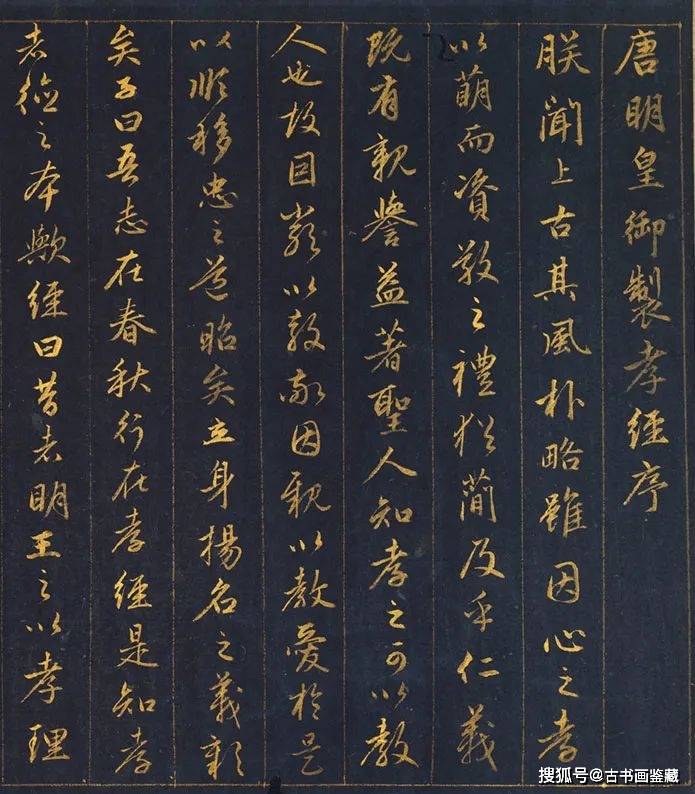 唐明皇御製孝經序
朕聞上古其風朴略雖因心之孝
以萌而資敬之禮猶簡及乎仁義
既有親譽益著聖人知孝之可以教
人也故因嚴以教敬因親以教愛於是
以順移忠之道昭矣立身揚名之義彰
矣子曰吾志在春秋行在孝經是知孝
者德之本歟經曰昔者明王之以孝理
搜狐号@古书画鉴藏